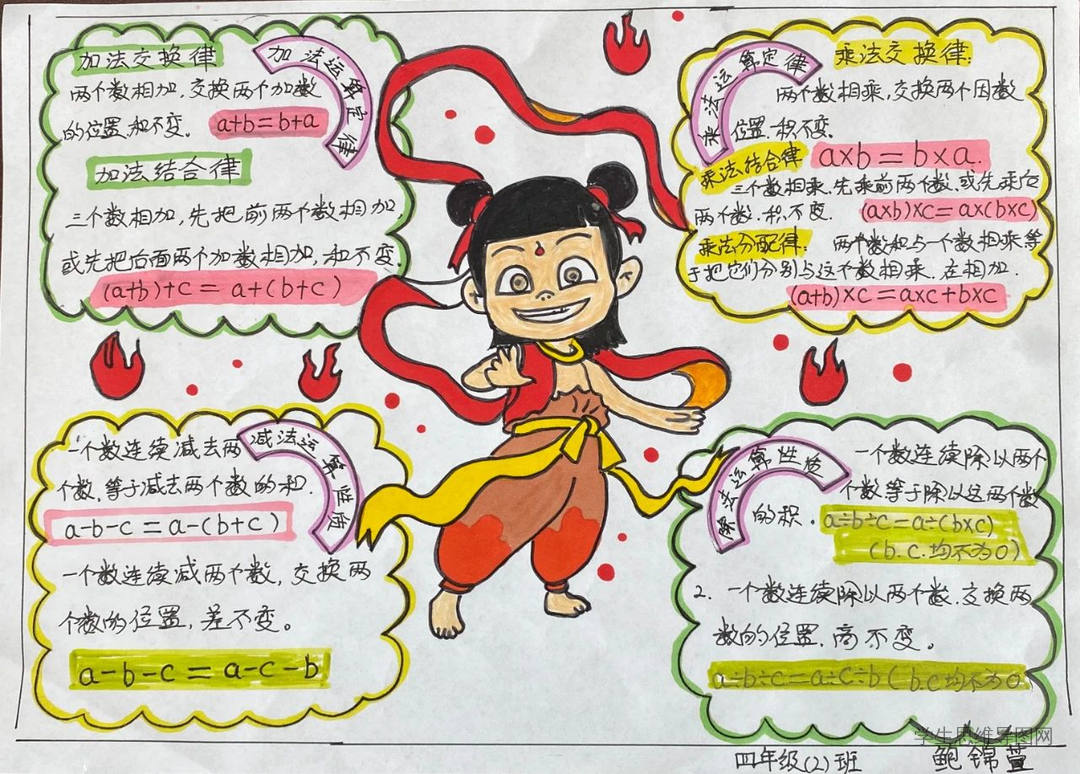 加法运算定律
加法交换律
两个数相加,交换两个加数
的位置,和不变。 a+b=b+a
加法结合律
三个数相加,先把前两个数相加,
或先把后面两个加数相加,和不变.
(a+b)+c=a+(b+c)
乘法运算定律
乘法交换律:
两个数相乘,交换两个因数
位置.积不变.
a×b=b×a.
乘法结合律
三个数相乘.先乘前两个数,或先乘后
两个数.积不变. (a×b)×c=a×(b×c)
乘法分配律: 两个数和与一个数相乘等
于把它们分别与这个数相乘.在相加.
(a+b)×c=a×c+b×c
减法运算性质
一个数连续减去两
个数,等于减去两个数的和.
a-b-c=a-(b+c)
一个数连续减两个数,交换两
个数的位置,差不变。
a-b-c=a-c-b
除法运算性质
一个数连续除以两个
个数等于除以这两个数
的积. a÷b÷c=a÷(b×c)
(b.c.均不为0)
2. 一个数连续除以两个数.交换两
数的位置.商不变。
a÷b÷c=a÷c÷b(b.c均不为0.
学生思维导图网
四年级(2)班 鲍锦萱